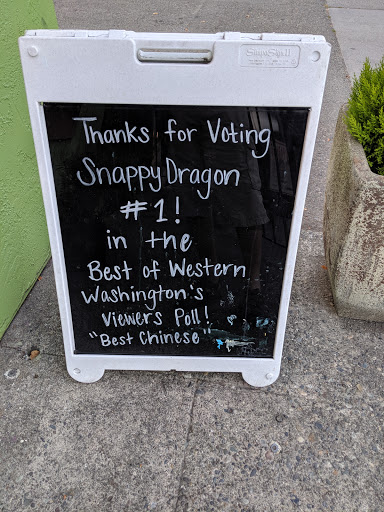 Thanks for Voting
Snappy Dragon
#1!
in the
Best of Western
Washington's
Viewers Poll!
"Best Chinese"